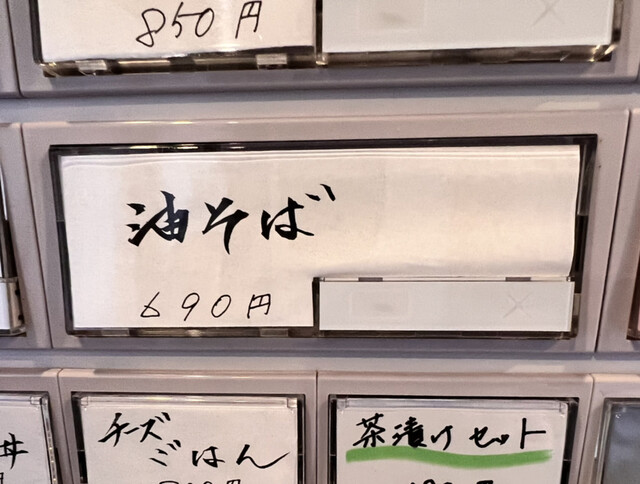 850円
油そば
690円
丼
チーズ
ごはん
茶漬けセット